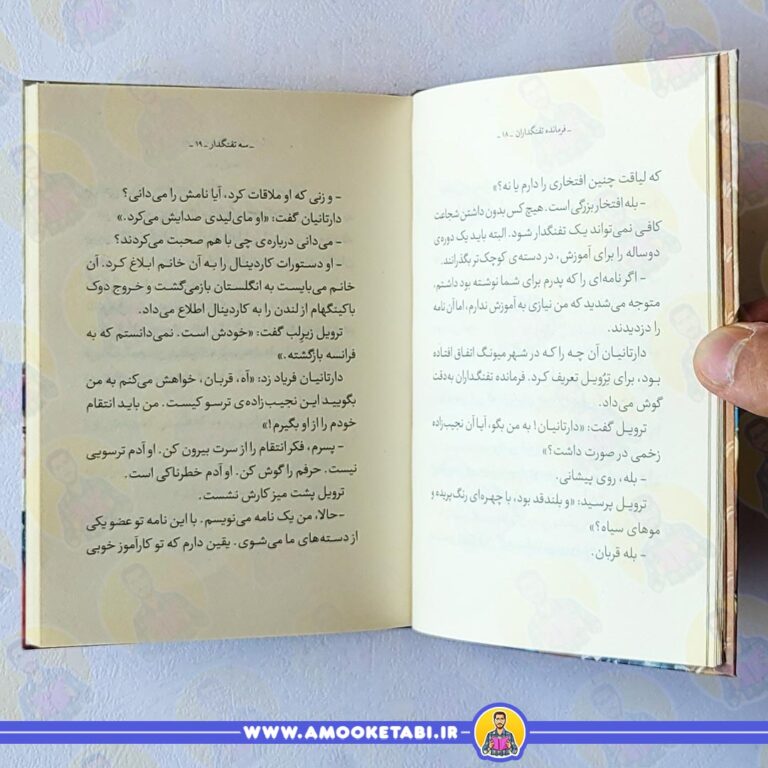 - فرمانده تفنگداران - ۱۸ -
که لیاقت چنین افتخاری را دارم یا نه؟»
- بله افتخار بزرگی است. هیچ کس بدون داشتن شجاعت
کافی نمی‌تواند یک تفنگدار شود. البته باید یک دوره‌ی
دوساله را برای آموزش، در دسته‌ی کوچک‌تر بگذرانند.
- اگر نامه‌ای را که پدرم برای شما نوشته بود داشتم،
متوجه می‌شدید که من نیازی به آموزش ندارم، اما آن نامه
را دزدیدند.
دارتانیان آن چه را که در شهر میونگ اتفاق افتاده
بود، برای تِرُویل تعریف کرد. فرمانده تفنگداران به‌دقت
گوش می‌داد.
ترویل گفت: «دارتانیان! به من بگو، آیا آن نجیب‌زاده
زخمی در صورت داشت؟»
- بله، روی پیشانی.
ترویل پرسید: «و بلندقد بود، با چهره‌ای رنگ‌پریده و
موهای سیاه؟»
- بله قربان.
- سه تفنگدار - ۱۹ -
- و زنی که او ملاقات کرد، آیا نامش را می‌دانی؟
دارتانیان گفت: «او مای‌لیدی صدایش می‌کرد.»
- می‌دانی درباره‌ی چی با هم صحبت می‌کردند؟
- او دستورات کاردینال را به آن خانم ابلاغ کرد. آن
خانم می‌بایست به انگلستان بازمی‌گشت و خروج دوک
باکینگهام از لندن را به کاردینال اطلاع می‌داد.
ترویل زیرلب گفت: «خودش است. نمی‌دانستم که به
فرانسه بازگشته.»
دارتانیان فریاد زد: «آه، قربان، خواهش می‌کنم به من
بگویید این نجیب‌زاده‌ی ترسو کیست. من باید انتقام
خودم را از او بگیرم!»
- پسرم، فکر انتقام را از سرت بیرون کن. او آدم ترسویی
نیست. حرفم را گوش کن. او آدم خطرناکی است.
ترویل پشت میز کارش نشست.
-حالا، من یک نامه می‌نویسم. با این نامه تو عضو یکی
از دسته‌های ما می‌شوی. یقین دارم که تو کارآموز خوبی
WWW.AMOOKETABI.IR